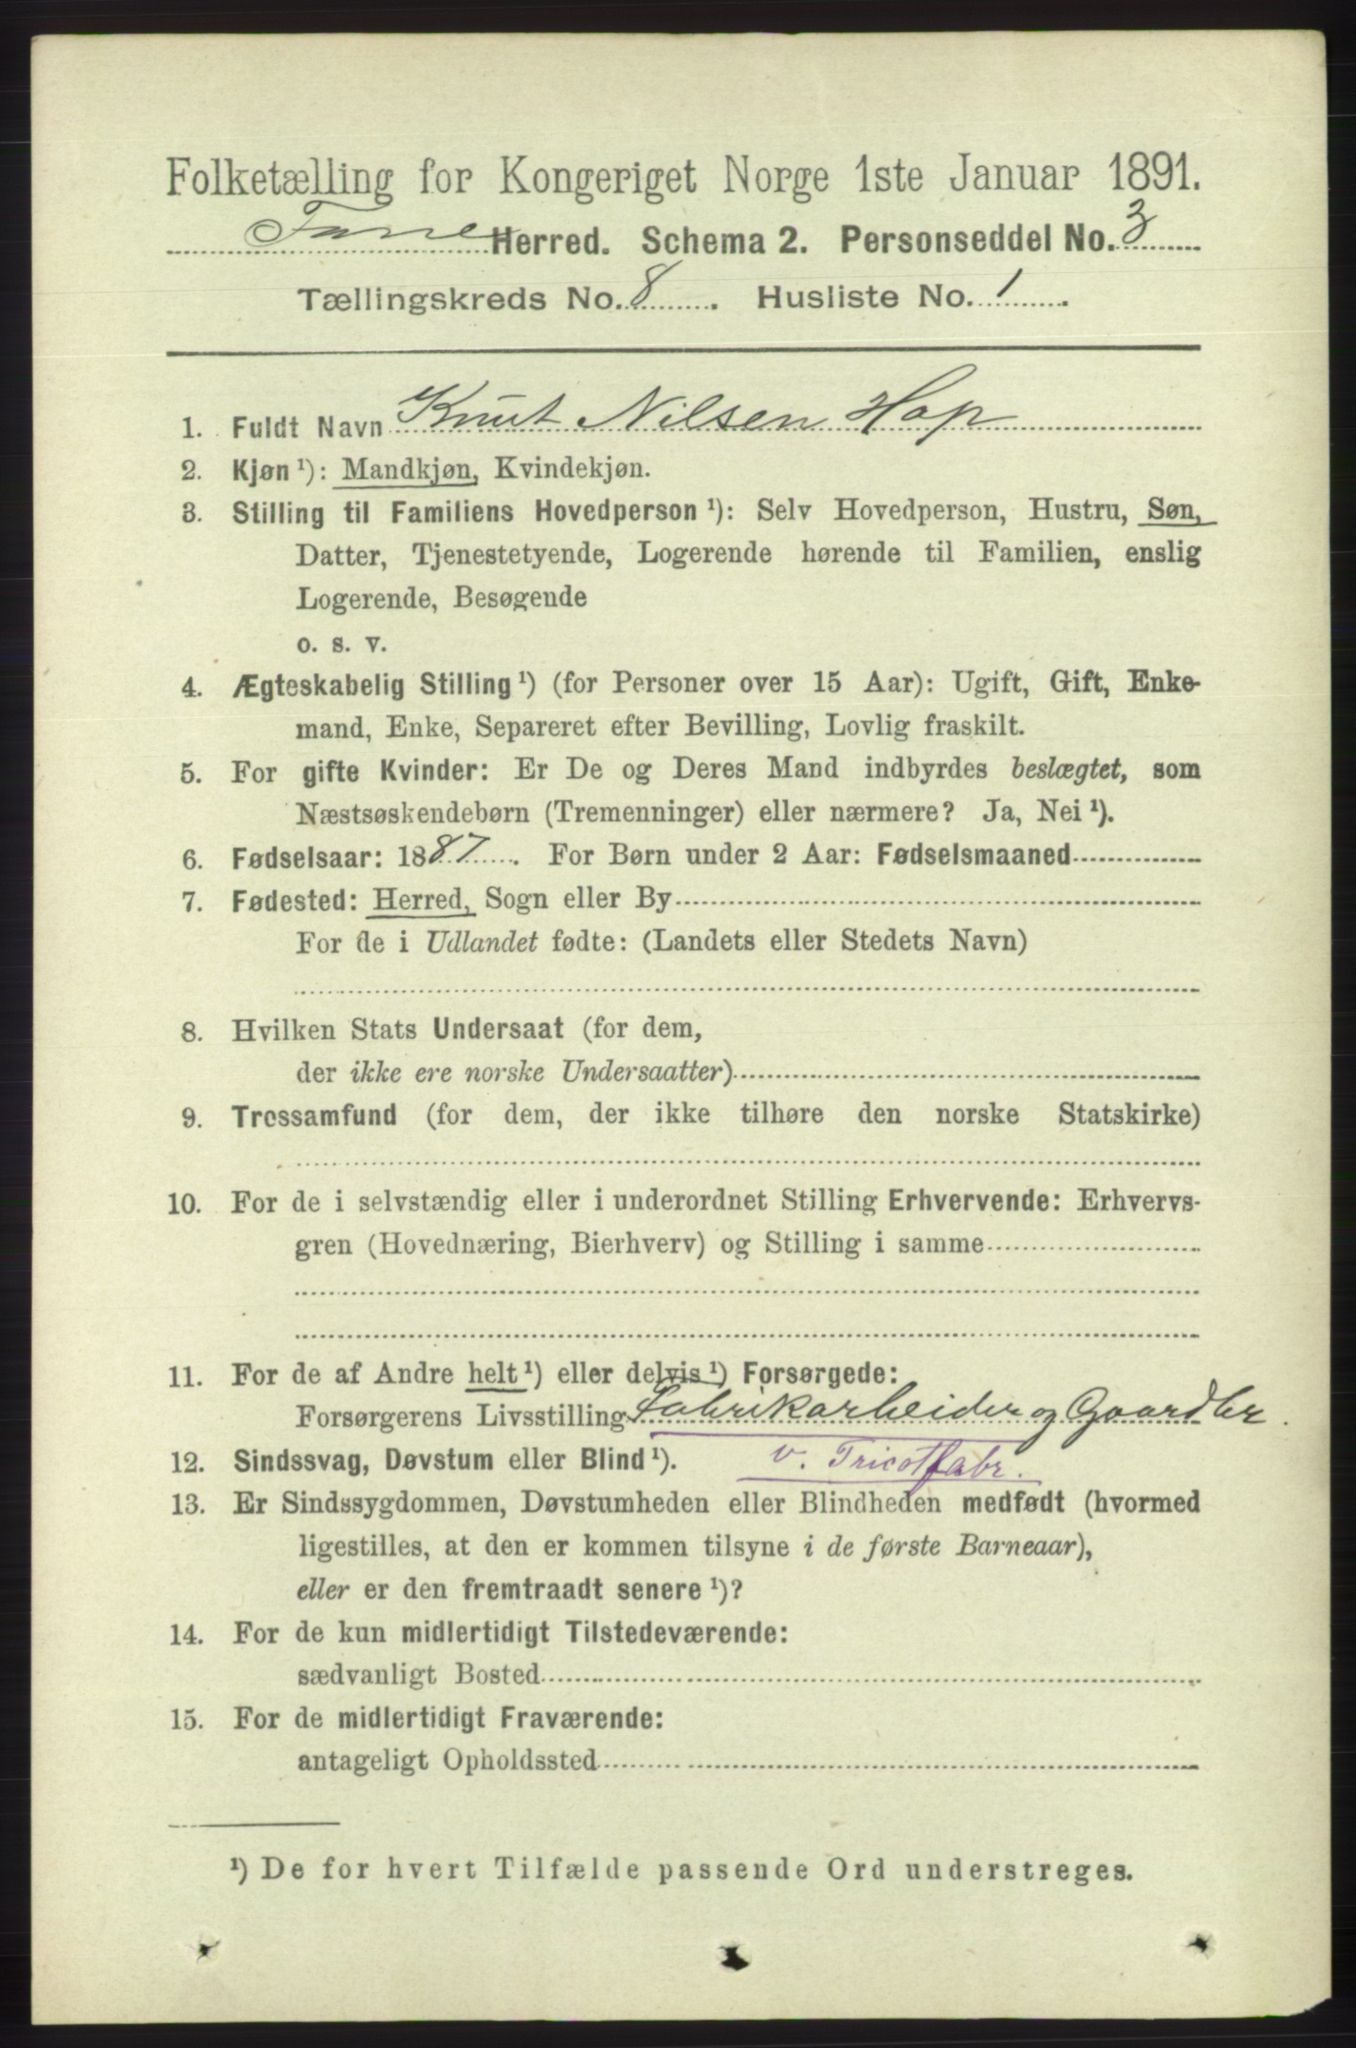 Folketælling for Kongeriget Norge 1ste Januar 1891.
Fane Herred. Schema 2. Personseddel No. 3
Tællingskreds No. 8. Husliste No. 1.
1. Fuldt Navn Knut Nilsen Hop
2. Kjøn¹): Mandkjøn, Kvindekjøn.
3. Stilling til Familiens Hovedperson¹): Selv Hovedperson, Hustru, Søn,
Datter, Tjenestetyende, Logerende hørende til Familien, enslig
Logerende, Besøgende
o. s. v.
4. Ægteskabelig Stilling¹) (for Personer over 15 Aar): Ugift, Gift, Enke-
mand, Enke, Separeret efter Bevilling, Lovlig fraskilt.
5. For gifte Kvinder: Er De og Deres Mand indbyrdes beslægtet, som
Næstsøskendebørn (Tremenninger) eller nærmere? Ja, Nei¹).
6. Fødselsaar: 1887. For Børn under 2 Aar: Fødselsmaaned
7. Fødested: Herred, Sogn eller By
For de i Udlandet fødte: (Landets eller Stedets Navn)
8. Hvilken Stats Undersaat (for dem,
der ikke ere norske Undersaatter)
9. Trossamfund (for dem, der ikke tilhøre den norske Statskirke)
10. For de i selvstændig eller i underordnet Stilling Erhvervende: Erhvervs-
gren (Hovednæring, Bierhverv) og Stilling i samme
11. For de af Andre helt¹) eller delvis¹) Forsørgede:
Forsørgerens Livsstilling Fabrikarbeider og Gaardbr.
12. Sindssvag, Døvstum eller Blind¹). v. Tricotfabr.
13. Er Sindssygdommen, Døvstumheden eller Blindheden medfødt (hvormed
ligestilles, at den er kommen tilsyne i de første Barneaar),
eller er den fremtraadt senere¹)?
14. For de kun midlertidigt Tilstedeværende:
sædvanligt Bosted
15. For de midlertidigt Fraværende:
antageligt Opholdssted
¹) De for hvert Tilfælde passende Ord understreges.